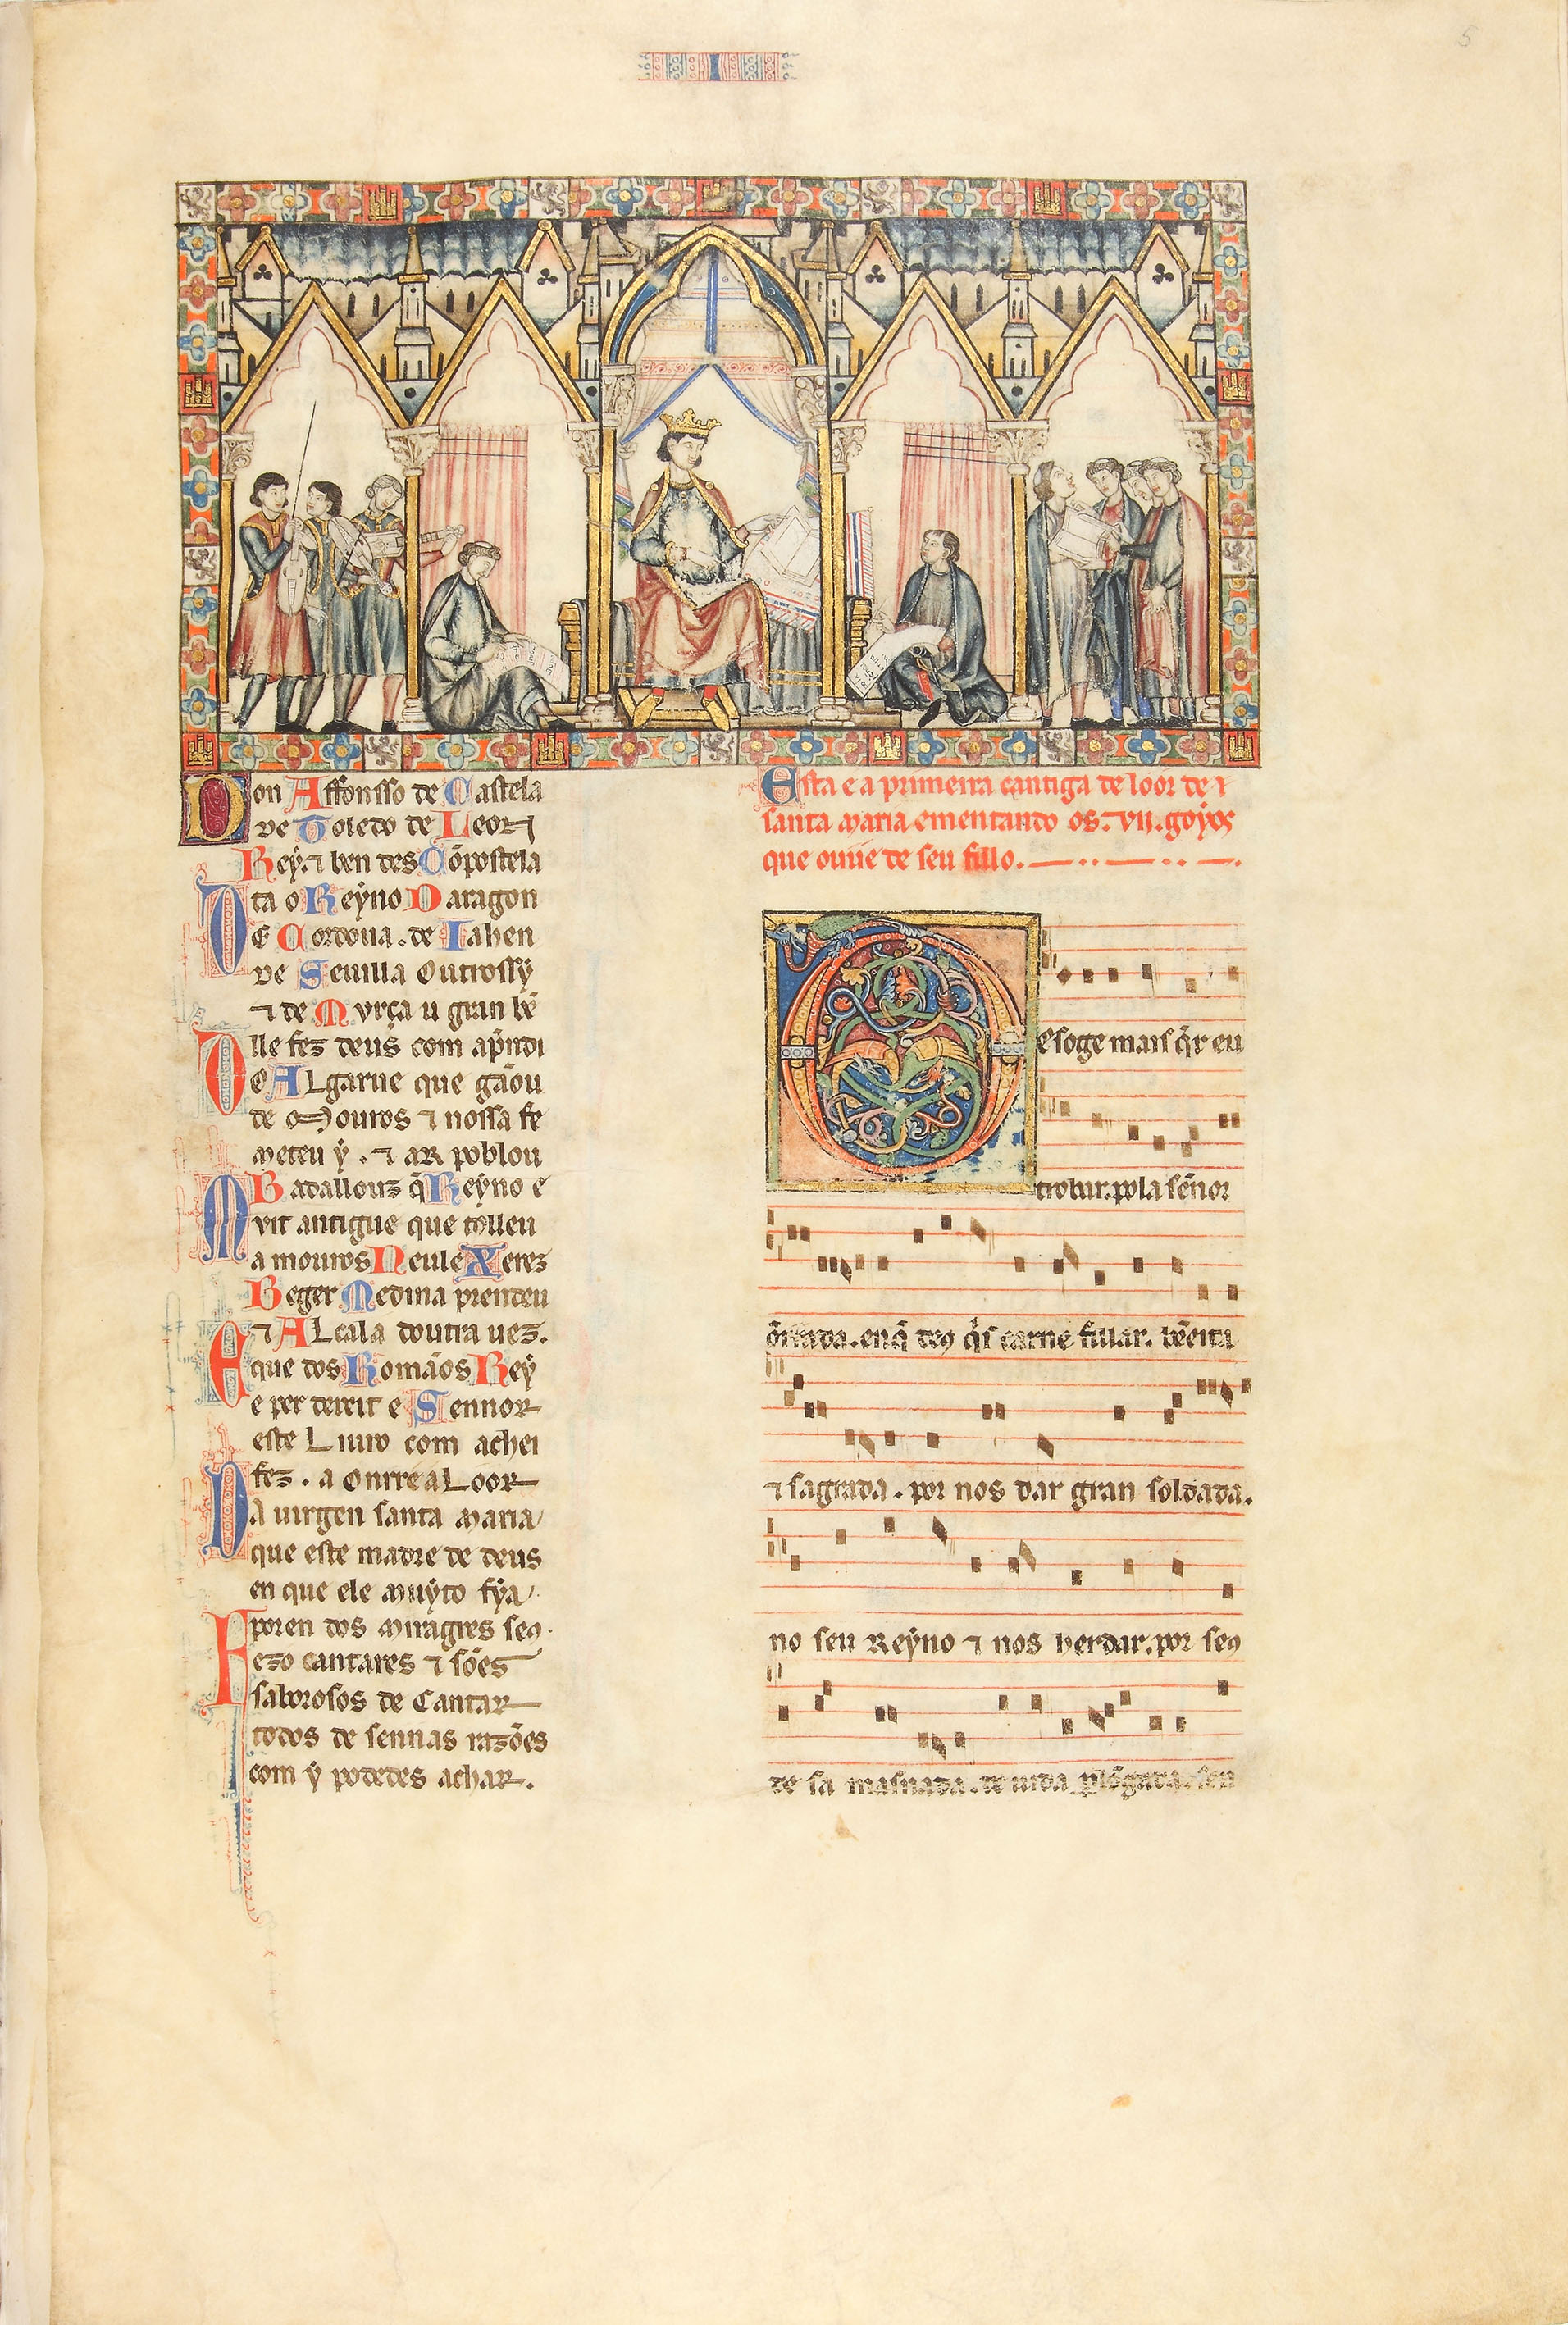 I
5
Don Affonsso de Castela
de Toledo de Leon
Rey. ⁊ ben des Cõpostela
ta o Reyno Daragon
De Cordoua. de Iahen
de Seuilla Outrossy
⁊ de Murça u gran bẽ
lle fez deus com ap̃ndi
Do ALgarue que gãou
de Mouros ⁊ nossa fe
meteu ẏ. ⁊ ar poblou
Badallouz q̃ Reẏno e
Muit antigue que tolleu
a mouros Neul e Xerez
Beger Medina prendeu
⁊ ALcala doutra uez.
E que dos Romãos Reẏ
e per dereit e Sennor
este Liuro com achei
fez. a onrr e a Loor
Da uirgen santa Maria
que este madre de deus
en que ele muẏto fẏa
poren dos miragres seꝯ
Fezo cantares ⁊ sões
saborosos de Cantar
todos de sennas razões
com ẏ podedes achar.
Esta e a primeira cantiga de loor de
santa maria ementando os. vii. goẏos
que ouue de seu fillo.
Des oge mais q̃r eu
trobar. pola sẽnor
õrrada. en q̃ deꝯ q̃s carne fillar. bẽeita
⁊ sagrada. por nos dar gran soldada.
no seu Reẏno ⁊ nos herdar. por seꝯ
de sa masnada. de uida ꝑlõgada. sen